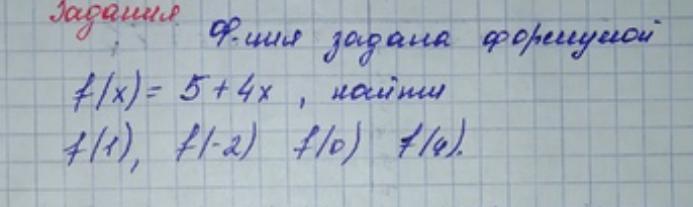 Задания
Ф-ция задана формулой
f(x) = 5 + 4x , найти
f(1), f(-2) f(0) f(4).